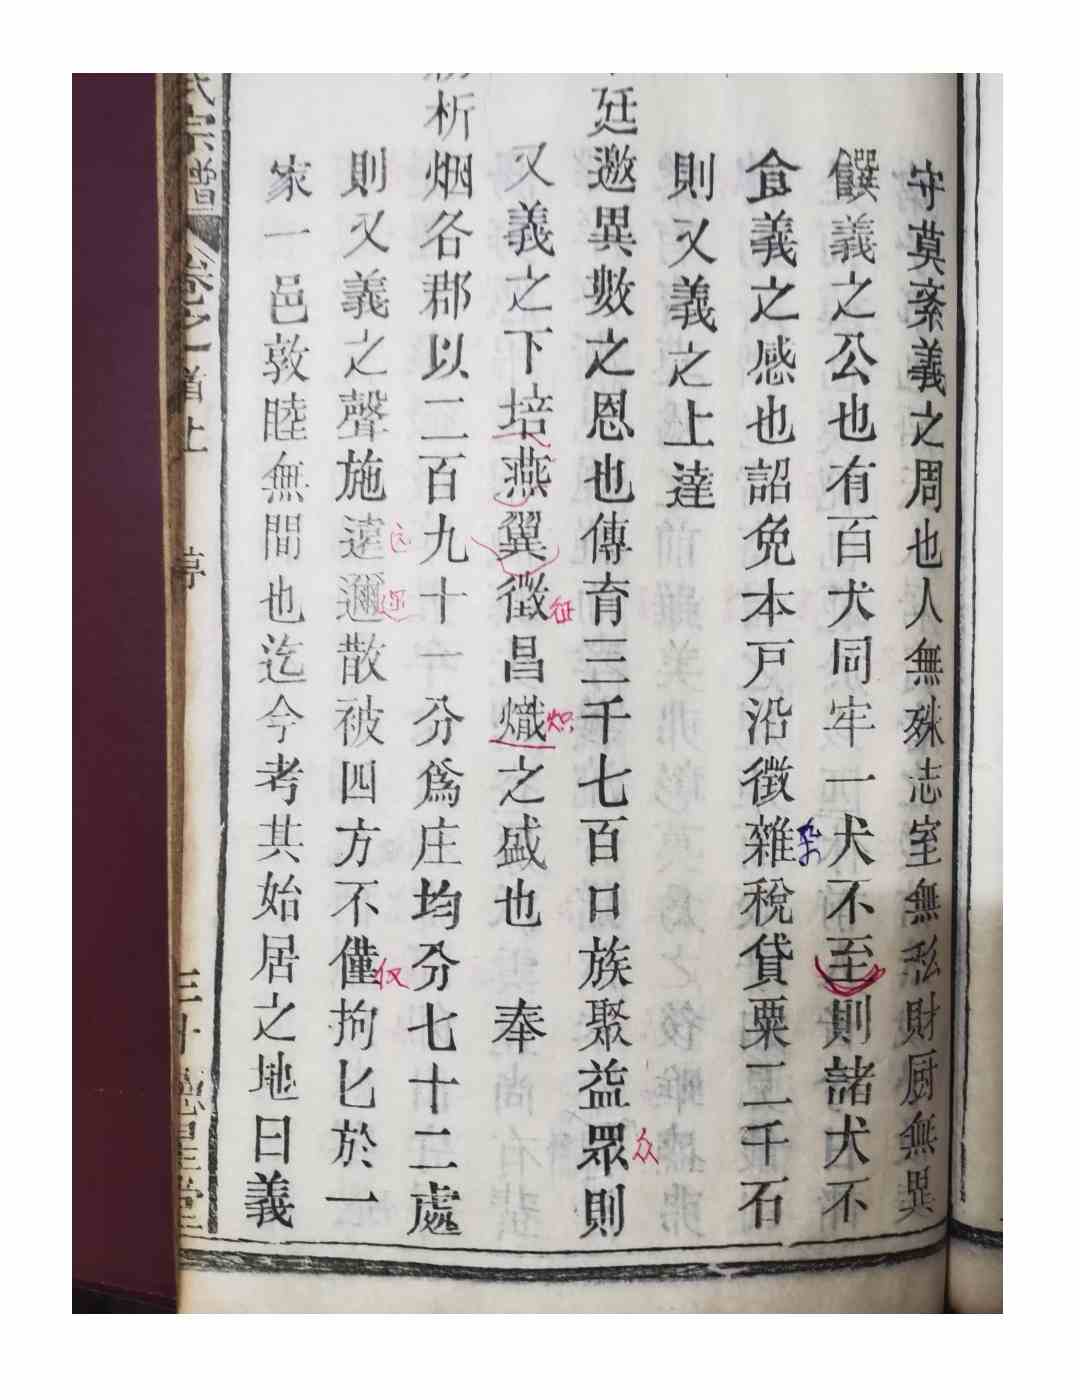 守莫紊義之周也人無殊志室無私財厨無異
饌義之公也有百犬同牢一犬不至則諸犬不
食義之感也詔免本戸沿徵雜稅貸粟二千石
則又義之上達
廷邀異數之恩也傳育三千七百口族聚益眾則
又義之下培燕翼徵昌熾之盛也　奉
析烟各郡以二百九十一分爲庄均分七十二處
則又義之聲施遠邇散被四方不僅拘匕於一
家一邑敦睦無間也迄今考其始居之地曰義
杂
众
征
炽
仅
远
迩
宗譜 卷之首上
三十 德星堂